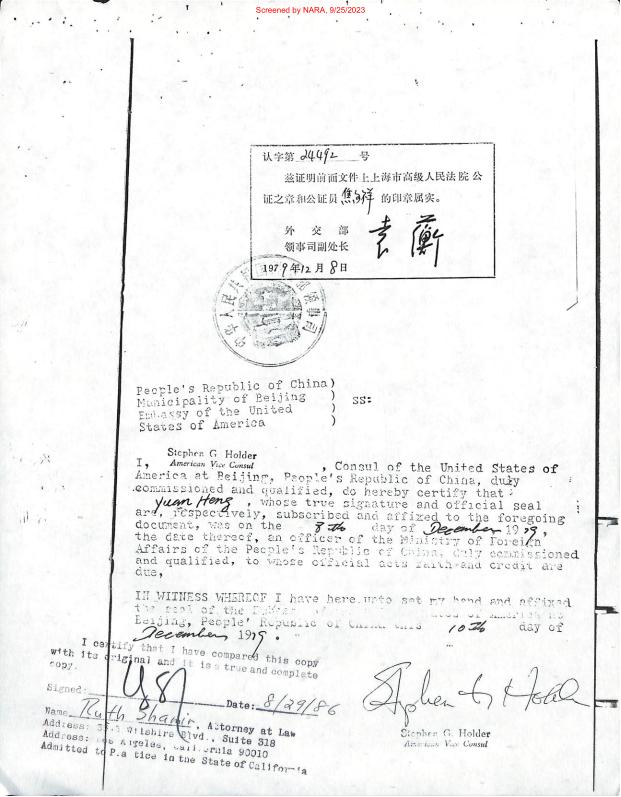 Screened by NARA, 9/25/2023
认字第 24492 号
兹证明前面文件上上海市高级人民法院公
证之章和公证员 焦 祥 的印章属实。
外 交 部
领事司副处长
袁 蘅
1979年12月8日
中华人民共和国 部领事司
People's Republic of China)
Municipality of Beijing )
Embassy of the United ) SS:
States of America )
Stephen G. Holder
I, American Vice Consul , Consul of the United States of
America at Beijing, People's Republic of China, duly
commissioned and qualified, do hereby certify that
Yuan Heng , whose true signature and official seal
are, respectively, subscribed and affixed to the foregoing
document, was on the 8th day of December 1979,
the date thereof, an officer of the Ministry of Foreign
Affairs of the People's Republic of China, duly commissioned
and qualified, to whose official acts faith and credit are
due,
IN WITNESS WHEREOF I have hereunto set my hand and affixed
the seal of the of America at
Beijing, People' Republic of China this 10th day of
December 1979.
I certify that I have compared this copy
with its original and it is a true and complete
copy.
Signed: Date: 8/29/86
Name Ruth Shamir, Attorney at Law
Address: Wilshire Blvd., Suite 318
Address: Los Angeles, California 90010
Admitted to Practice in the State of California
Stephen G Holder
Stephen G. Holder
American Vice Consul